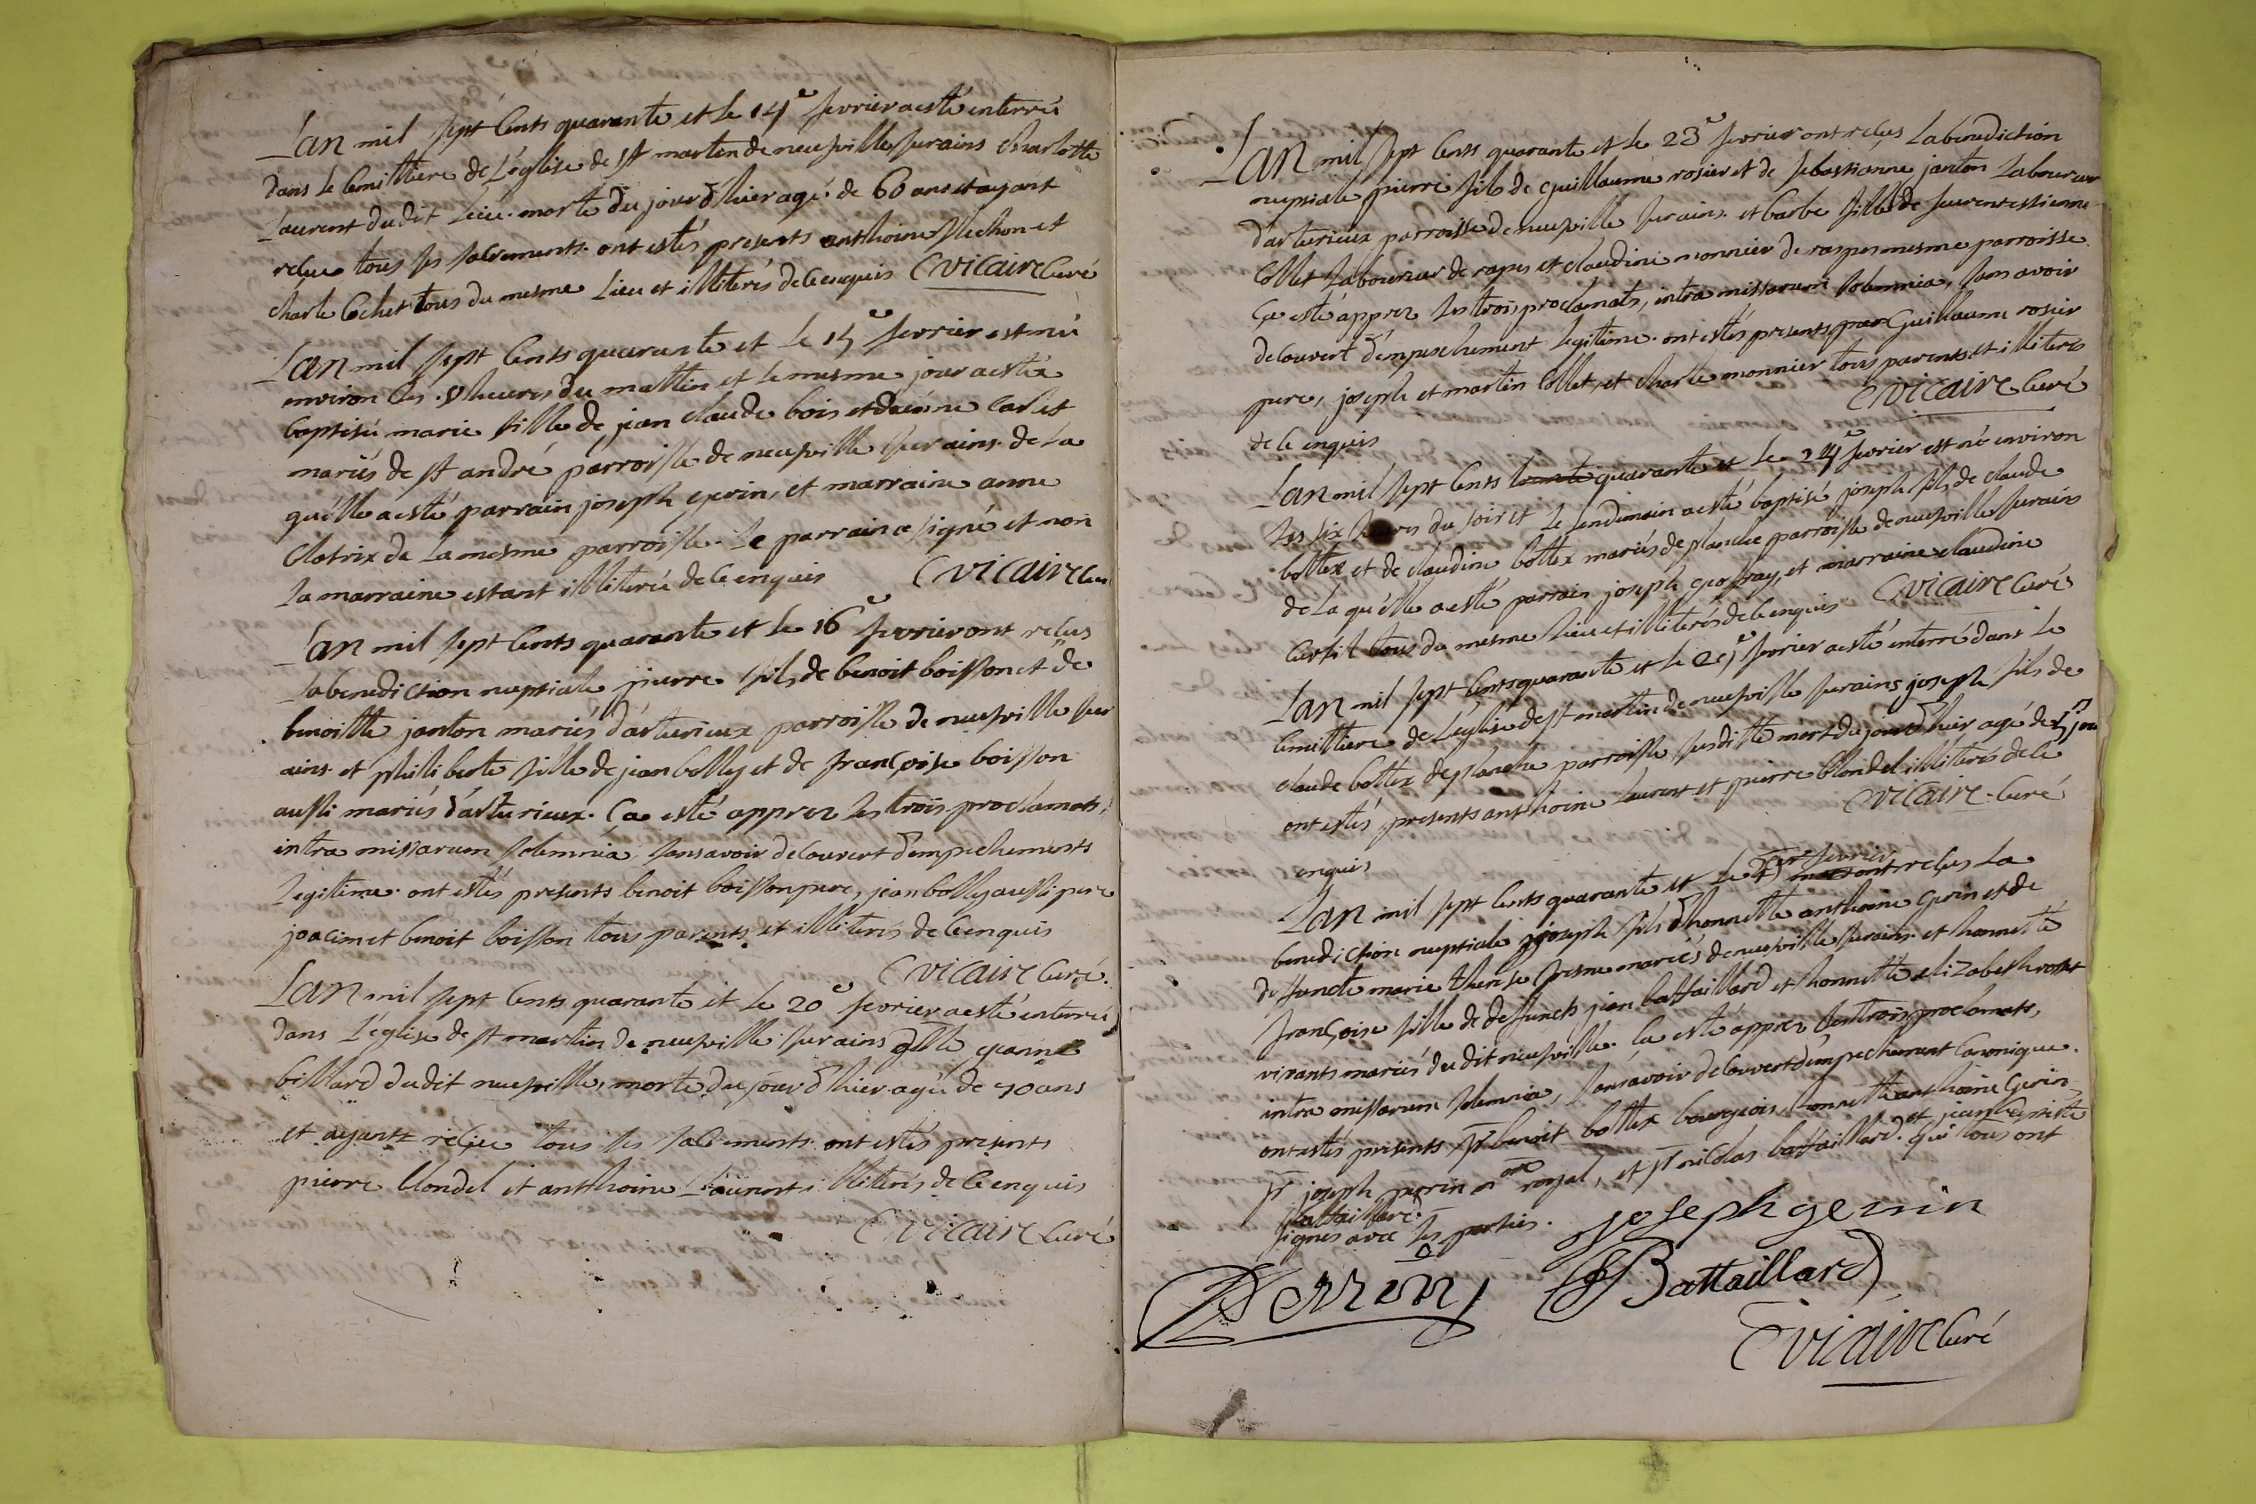 Lan mil sept Cents quarante et le 14e fevrier a esté enterré
dans le Cemittiere de L'église de st martin de neufville surains Charlotte
Laurent dudit Lieu. morte du jour d'hier agé de 60 ans et ayant
reçue tous ses sacrements. ont estés presents anthoine
charle tous du mesme Lieu et illiterés de ce enquis Cvicaire Curé
Lan mil sept Cents quarante et le 15e fevrier est né
environ les heures du mattin et le mesme jour a esté
baptisé marie fille de jean claude bois et
mariés de st andré parroisse de neufville surains. de La
quélle a esté parrain joseph gerin, et marraine anne
de La mesme parroisse. Le parrain a signé et non
La marraine estant illiterée de ce enquis Cvicaire Cu
Lan mil sept Cents quarante et le 16e fevrier ont reçus
La benediction nuptiale pierre fils de benoit boisson et de
benoitte janton mariés d'arturieux parroisse de neufville sur
ains. et philiberte fille de jean bolly et de françoise boisson
aussi mariés d'arturieux. Ça esté apprez les trois proclamats,
intra missarum solemnia, sans avoir découvert d'empechements
Legitime. ont estés presents benoit boisson pere, jean bolly aussi pere
joacim et benoit boisson tous parents et illiterés de ce enquis
Cvicaire Curé.
Lan mil sept Cents quarante et le 20e fevrier a esté enterré
dans L'église de st martin de neufville surains jeanne
billard dudit neufville, morte du jour d'hier agé de 70 ans
et ayant reçue tous ses sacrements. ont estés presents
pierre blondel et anthoine Laurent illiterés de ce enquis
Cvicaire Curé
Lan mil sept Cents quarante et le 23e fevrier ont reçus La benediction
nuptiale pierre fils de guillaume rosier et de sebastianne janton Laboureur
d'arturieux parroisse de neufville surains. et barbe fille de
Collet Laboureur de rapes et claudine monnier de raspes mesme parroisse
Ça esté apprez les trois proclamats, intra missarum solemnia, sans avoir
découvert d'empeschement legitime. ont estés presents Guillaume rosier
pere, joseph et martin Collet, et charle monnier tous parents et illiterés
de ce enquis Cvicaire Curé
Lan mil sept Cents quarante et le 24e fevrier est né environ
Les six heures du soir et le lendemain a esté baptisé joseph fils de claude
bottex et de claudine bottex mariés de planche parroisse de neufville surains
de La quélle a esté parrain joseph geoffray, et marraine claudine
Curtil tous du mesme Lieu et illiterés de ce enquis Cvicaire Curé
Lan mil sept Cents quarante et le fevrier a esté enterré dans Le
Cemittiere de L'église de st martin de neufville surains joseph fils de
claude bottex de planche parroisse susditte mort du jour d'hier agé de jou
ont estés presents anthoine Laurent et pierre blondel illiterés de ce
enquis Cvicaire Curé
Lan mil sept Cents quarante et le fevrier ont reçus La
benediction nuptiale joseph fils d'honnette anthoine Gerin et de
deffuncte marie therese mariés de neufville surains. et honnette
françoise fille de deffunct jean battaillard et honnette elizabeth
vivants mariés dudit neufville. Ça esté apprez les trois proclamats,
intra missarum solemnia, sans avoir découvert d'empechement Canonique.
ont estés presents sr benoit bottex bourgeois, honnette anthoine Gerin,
sr joseph perrin nore royal, et sr nicolas battaillard. et jean baptiste
battaillard. qui tous ont
signés avec les parties.
joseph gerin
Perrin Battaillard
Cvicaire Curé